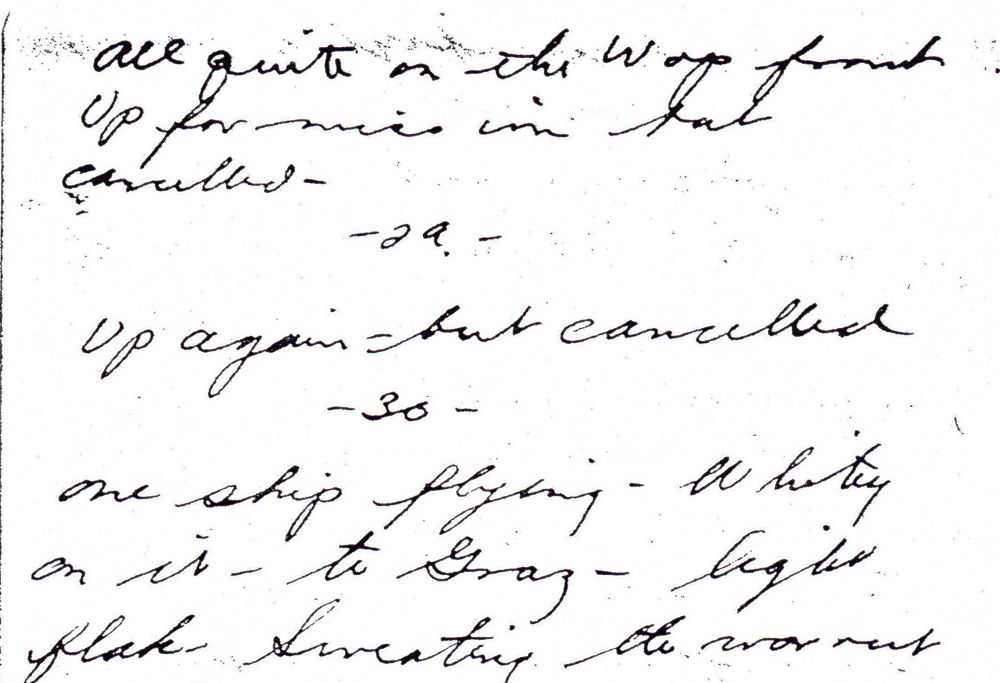 All quite on the Wop front.
Up for mission but
cancelled -
- 29. -
Up again - but cancelled
- 30 -
one ship flying - Whitey
on it - to Graz - light
flak - Sweating the war out